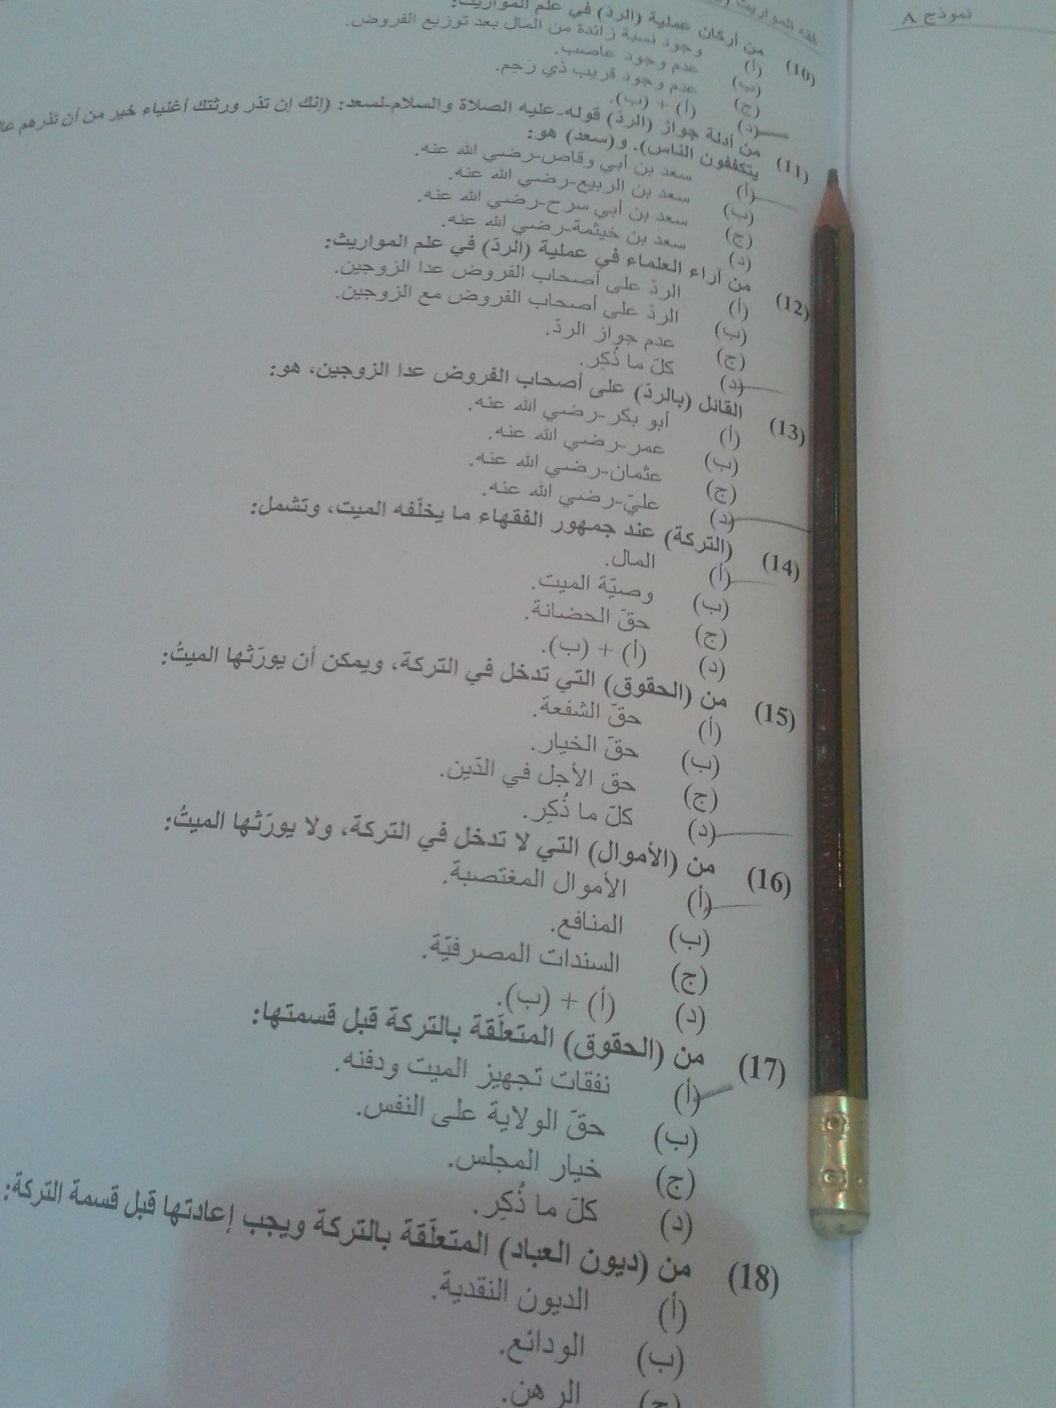 نموذج A
فقه المواريث
من أركان عملية (الردّ) في علم المواريث:
(10)
(أ) وجود نسبة زائدة من المال بعد توزيع الفروض.
(ب) عدم وجود عاصب.
(ج) عدم وجود قريب ذي رَحِم.
(د) (أ) + (ب).
(11) من أدلة جواز (الردّ) قوله-عليه الصلاة والسلام-لسعد: (إنك إن تذر ورثتك أغنياء خير من أن تذرهم
يتكففون الناس). و(سعد) هو:
(أ) سعد بن أبي وقاص-رضي الله عنه.
(ب) سعد بن الربيع-رضي الله عنه.
(ج) سعد بن أبي سرح-رضي الله عنه.
(د) سعد بن خيثمة-رضي الله عنه.
(12) من آراء العلماء في عملية (الردّ) في علم المواريث:
(أ) الردّ على أصحاب الفروض عدا الزوجين.
(ب) الردّ على أصحاب الفروض مع الزوجين.
(ج) عدم جواز الردّ.
(د) كلّ ما ذُكِر.
(13) القائل (بالردّ) على أصحاب الفروض عدا الزوجين، هو:
(أ) أبو بكر-رضي الله عنه.
(ب) عمر-رضي الله عنه.
(ج) عثمان-رضي الله عنه.
(د) عليّ-رضي الله عنه.
(14) (التركة) عند جمهور الفقهاء ما يخلّفه الميت، وتشمل:
(أ) المال.
(ب) وصيّة الميت.
(ج) حقّ الحضانة.
(د) (أ) + (ب).
(15) من (الحقوق) التي تدخل في التركة، ويمكن أن يورّثها الميتُ:
(أ) حقّ الشفعة.
(ب) حقّ الخيار.
(ج) حق الأجل في الدّين.
(د) كلّ ما ذُكِر.
(16) من (الأموال) التي لا تدخل في التركة، ولا يورّثها الميتُ:
(أ) الأموال المغتصبة.
(ب) المنافع.
(ج) السندات المصرفيّة.
(د) (أ) + (ب).
(17) من (الحقوق) المتعلّقة بالتركة قبل قسمتها:
(أ) نفقات تجهيز الميت ودفنه.
(ب) حقّ الولاية على النفس.
(ج) خيار المجلس.
(د) كلّ ما ذُكِر.
(18) من (ديون العباد) المتعلّقة بالتركة ويجب إعادتها قبل قسمة التركة:
(أ) الديون النقدية.
(ب) الودائع.
(ج) الرهن.